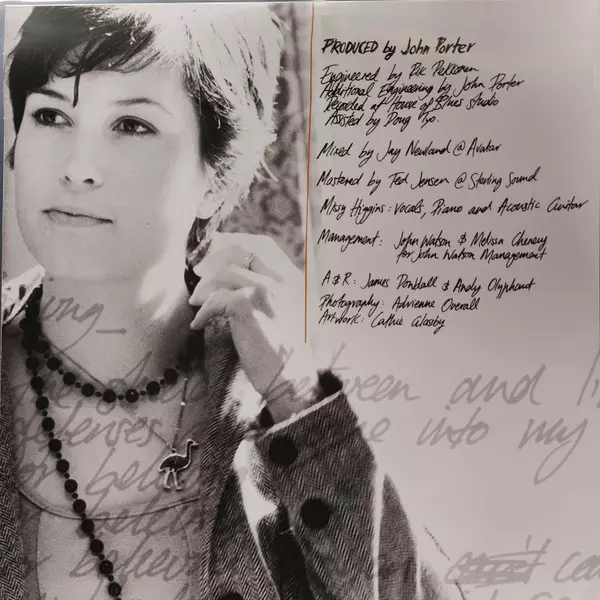 PRODUCED by John Porter
Engineered by Rik Pekkonen
Additional Engineering by John Porter
Recorded at House of Blues studio
Assisted by Doug Tyo.
Mixed by Jay Newland @ Avatar
Mastered by Ted Jensen @ Sterling Sound
Missy Higgins: Vocals, Piano and Acoustic Guitar
Management: John Watson & Melissa Chenery
for John Watson Management
A&R: James Dowdall & Andy Olyphant
Photography: Adrienne Overall
Artwork: Cathie Glassby
between and
defenses into my